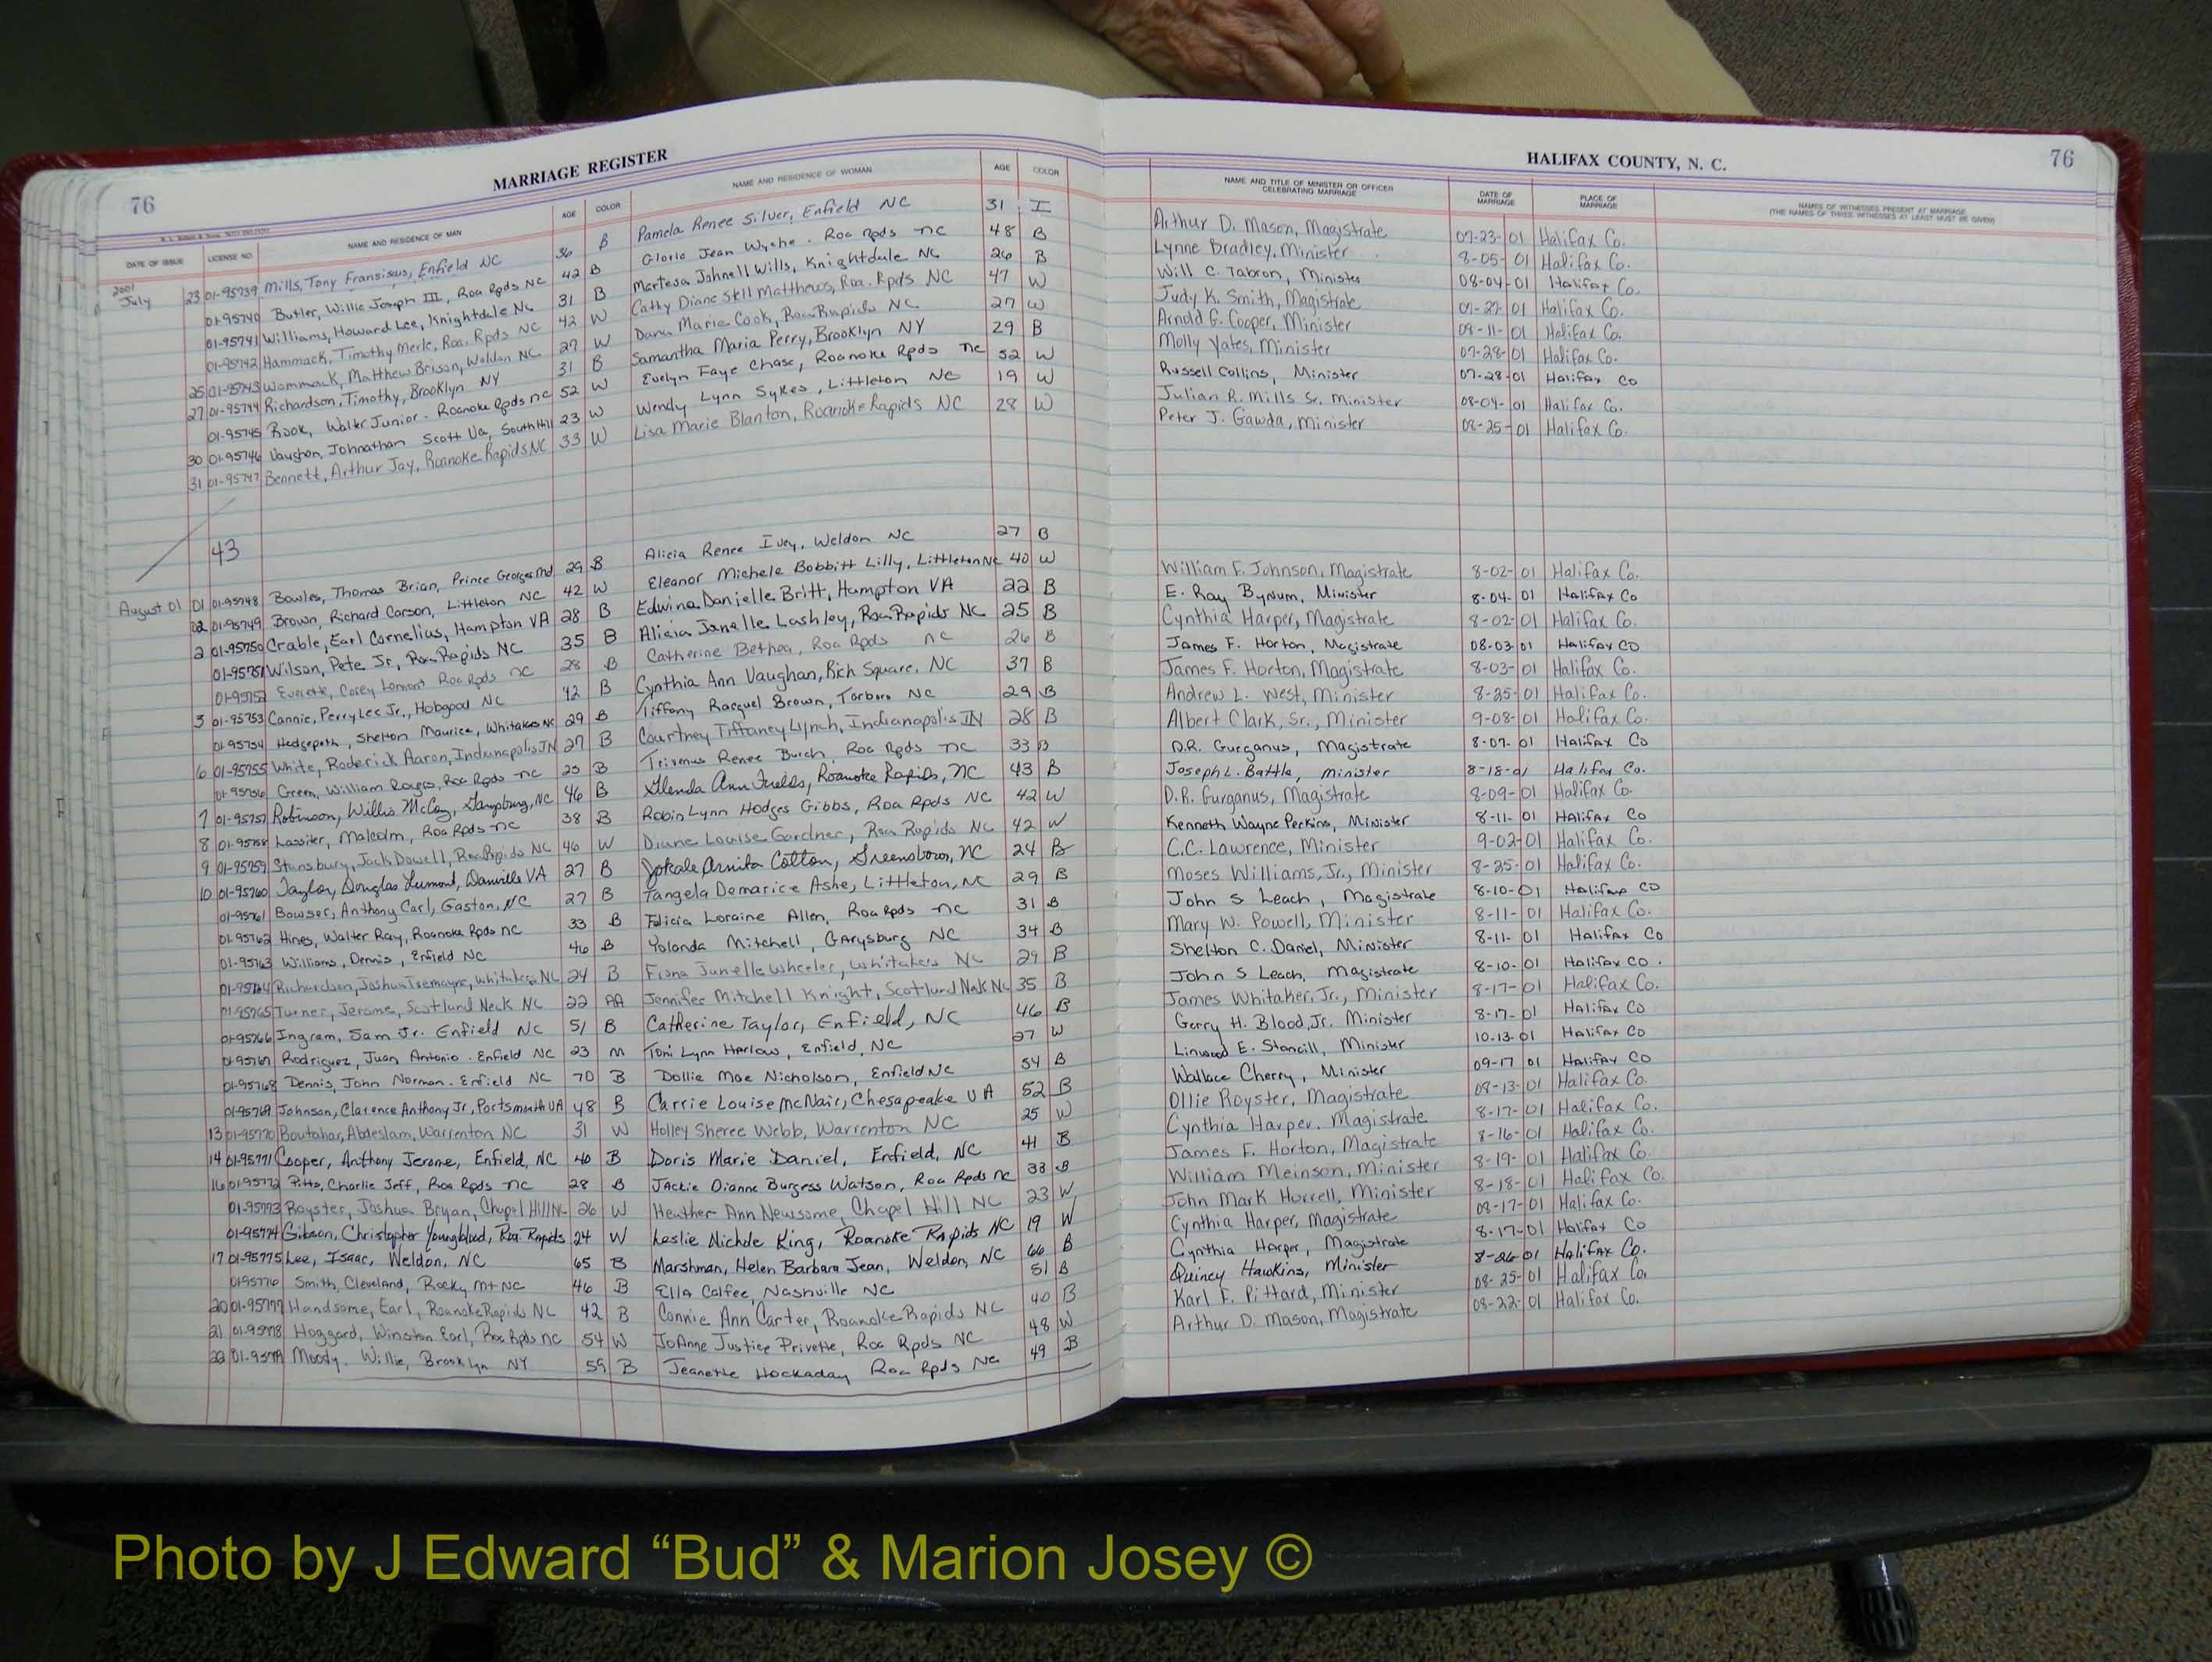 76
MARRIAGE REGISTER
HALIFAX COUNTY, N. C.
76
DATE OF ISSUE LICENSE NO. NAME AND RESIDENCE OF MAN AGE COLOR NAME AND RESIDENCE OF WOMAN AGE COLOR NAME AND TITLE OF MINISTER OR OFFICER CELEBRATING MARRIAGE DATE OF MARRIAGE PLACE OF MARRIAGE NAMES OF WITNESSES PRESENT AT MARRIAGE (THE NAMES OF THREE WITNESSES AT LEAST MUST BE GIVEN)
2001
July 23 01-95739 Mills, Tony Fransiscus, Enfield NC 36 B Pamela Renee Silver, Enfield NC 31 I Arthur D. Mason, Magistrate 07-23-01 Halifax Co.
01-95740 Butler, Willie Joseph III, Roa Rpds NC 42 B Gloria Jean Wyche. Roa Rpds nc 48 B Lynne Bradley, Minister 8-05-01 Halifax Co.
01-95741 Williams, Howard Lee, Knightdale NC 31 B Martesa Johnell Wills, Knightdale NC 26 B Will C. Tabron, Minister 08-04-01 Halifax Co.
01-95742 Hammack, Timothy Merle, Roa. Rpds NC 42 W Cathy Diane Matthews, Roa. Rpds NC 47 W Judy K. Smith, Magistrate 07-27-01 Halifax Co.
25 01-95743 Wommack, Matthew Brison, Weldon NC 27 W Dana Marie Cook, Roa Rapids NC 27 W Arnold G. Cooper, Minister 08-11-01 Halifax Co.
27 01-95744 Richardson, Timothy, Brooklyn NY 31 B Samantha Maria Perry, Brooklyn NY 29 B Molly Yates, Minister 07-28-01 Halifax Co.
01-95745 Rook, Walter Junior - Roanoke Rpds nc 52 W Evelyn Faye Chase, Roanoke Rpds nc 52 W Russell Collins, Minister 07-28-01 Halifax Co
30 01-95746 Vaughan, Johnathan Scott Va, South Hill 23 W Wendy Lynn Sykes, Littleton NC 19 W Julian R. Mills Sr. Minister 08-04-01 Halifax Co.
31 01-95747 Bennett, Arthur Jay, Roanoke Rapids NC 33 W Lisa Marie Blanton, Roanoke Rapids NC 28 W Peter J. Gawda, Minister 08-25-01 Halifax Co.
43
August 01 01 01-95748 Bowles, Thomas Brian, Prince Georges Md 29 B Alicia Renee Ivey, Weldon NC 27 B William F. Johnson, Magistrate 8-02-01 Halifax Co.
02 01-95749 Brown, Richard Carson, Littleton NC 42 W Eleanor Michele Bobbitt Lilly, Littleton NC 40 W E. Ray Bynum, Minister 8-04-01 Halifax Co
2 01-95750 Crable, Earl Cornelius, Hampton VA 28 B Edwina Danielle Britt, Hampton VA 22 B Cynthia Harper, Magistrate 8-02-01 Halifax Co.
01-95751 Wilson, Pete Jr., Roa Rapids NC 35 B Alicia Janelle Lashley, Roa Rapids NC 25 B James F. Horton, Magistrate 08-03-01 Halifax Co
01-95752 Everette, Corey Lamont Roa Rpds nc 28 B Catherine Bethea, Roa Rpds nc 26 B James F. Horton, Magistrate 8-03-01 Halifax Co.
3 01-95753 Cannie, Perry Lee Jr., Hobgood NC 42 B Cynthia Ann Vaughan, Rich Square, NC 37 B Andrew L. West, Minister 8-25-01 Halifax Co.
01-95754 Hedgepeth, Shelton Maurice, Whitakers NC 29 B Tiffany Racquel Brown, Tarboro NC 29 B Albert Clark, Sr., Minister 9-08-01 Halifax Co.
6 01-95755 White, Roderick Aaron, Indianapolis IN 27 B Courtney Tiffaney Lynch, Indianapolis IN 28 B D.R. Gurganus, Magistrate 8-07-01 Halifax Co
01-95756 Green, William Rogers, Roa Rpds nc 25 B Renee Burch, Roa Rpds nc 33 B Joseph L. Battle, minister 8-18-01 Halifax Co.
7 01-95757 Robinson, Willis McCoy, Garysburg, NC 46 B Glenda Ann Fields, Roanoke Rapids, NC 43 B D.R. Gurganus, Magistrate 8-09-01 Halifax Co.
8 01-95758 Lassiter, Malcolm, Roa Rpds nc 38 B Robin Lynn Hodges Gibbs, Roa Rpds NC 42 W Kenneth Wayne Perkins, Minister 8-11-01 Halifax Co
9 01-95759 Stansbury, Jack Dowell, Roa Rapids NC 46 W Diane Louise Gardner, Roa Rapids NC 42 W C.C. Lawrence, Minister 9-02-01 Halifax Co.
10 01-95760 Taylor, Douglas Lumont, Danville VA 27 B Jokale Arnita Cotton, Greensboro, NC 24 B Moses Williams, Jr., Minister 8-25-01 Halifax Co.
01-95761 Bowser, Anthony Carl, Gaston, NC 27 B Tangela Demarice Ashe, Littleton, NC 29 B John S Leach, Magistrate 8-10-01 Halifax Co
01-95762 Hines, Walter Ray, Roanoke Rpds nc 33 B Felicia Loraine Allen, Roa Rpds nc 31 B Mary W. Powell, Minister 8-11-01 Halifax Co.
01-95763 Williams, Dennis, Enfield NC 46 B Yolanda Mitchell, Garysburg NC 34 B Shelton C. Daniel, Minister 8-11-01 Halifax Co
01-95764 Richardson, Joshua Tremayne, Whitakers, NC 24 B Fiona Junelle Wheeler, Whitakers NC 29 B John S Leach, Magistrate 8-10-01 Halifax Co.
01-95765 Turner, Jerome, Scotland Neck NC 22 AA Jennifer Mitchell Knight, Scotland Neck NC 35 B James Whitaker, Jr., Minister 8-17-01 Halifax Co.
01-95766 Ingram, Sam Jr. Enfield NC 51 B Catherine Taylor, Enfield, NC 46 B Gerry H. Blood, Jr. Minister 8-17-01 Halifax Co
01-95767 Rodriguez, Juan Antonio. Enfield NC 23 M Toni Lynn Harlow, Enfield, NC 27 W Linwood E. Stancill, Minister 10-13-01 Halifax Co
01-95768 Dennis, John Norman. Enfield NC 70 B Dollie Mae Nicholson, Enfield NC 54 B Wallace Cherry, Minister 09-17 01 Halifax Co
01-95769 Johnson, Clarence Anthony Jr, Portsmouth VA 48 B Carrie Louise McNair, Chesapeake VA 52 B Ollie Royster, Magistrate 08-13-01 Halifax Co.
13 01-95770 Boutahar, Abdeslam, Warrenton NC 31 W Holley Sheree Webb, Warrenton NC 25 W Cynthia Harper, Magistrate 8-17-01 Halifax Co.
14 01-95771 Cooper, Anthony Jerome, Enfield, NC 40 B Doris Marie Daniel, Enfield, NC 41 B James F. Horton, Magistrate 8-16-01 Halifax Co.
16 01-95772 Pitts, Charlie Jeff, Roa Rpds nc 28 B Jackie Dianne Burgess Watson, Roa Rpds nc 38 B William Meinson, Minister 8-19-01 Halifax Co.
01-95773 Royster, Joshua Bryan, Chapel Hill NC 26 W Heather Ann Newsome, Chapel Hill NC 23 W John Mark Harrell, Minister 8-18-01 Halifax Co.
01-95774 Gibson, Christopher Youngblood, Roa Rapids 24 W Leslie Nichole King, Roanoke Rapids NC 19 W Cynthia Harper, Magistrate 08-17-01 Halifax Co.
17 01-95775 Lee, Isaac, Weldon, NC 65 B Marshman, Helen Barbara Jean, Weldon, NC 66 B Cynthia Harper, Magistrate 8-17-01 Halifax Co
01-95776 Smith, Cleveland, Rocky Mt NC 46 B Ella Calfee, Nashville NC 51 B Quincy Hawkins, Minister 8-26-01 Halifax Co.
20 01-95777 Handsome, Earl, Roanoke Rapids NC 42 B Connie Ann Carter, Roanoke Rapids NC 40 B Karl F. Pittard, Minister 08-25-01 Halifax Co.
21 01-95778 Hoggard, Winston Earl, Roa Rpds nc 54 W JoAnne Justice Privette, Roa Rpds NC 48 W Arthur D. Mason, Magistrate 08-22-01 Halifax Co.
22 01-95779 Moody, Willie, Brooklyn NY 59 B Jeanette Hockaday Roa Rpds NC 49 B
Photo by J Edward “Bud” & Marion Josey ©